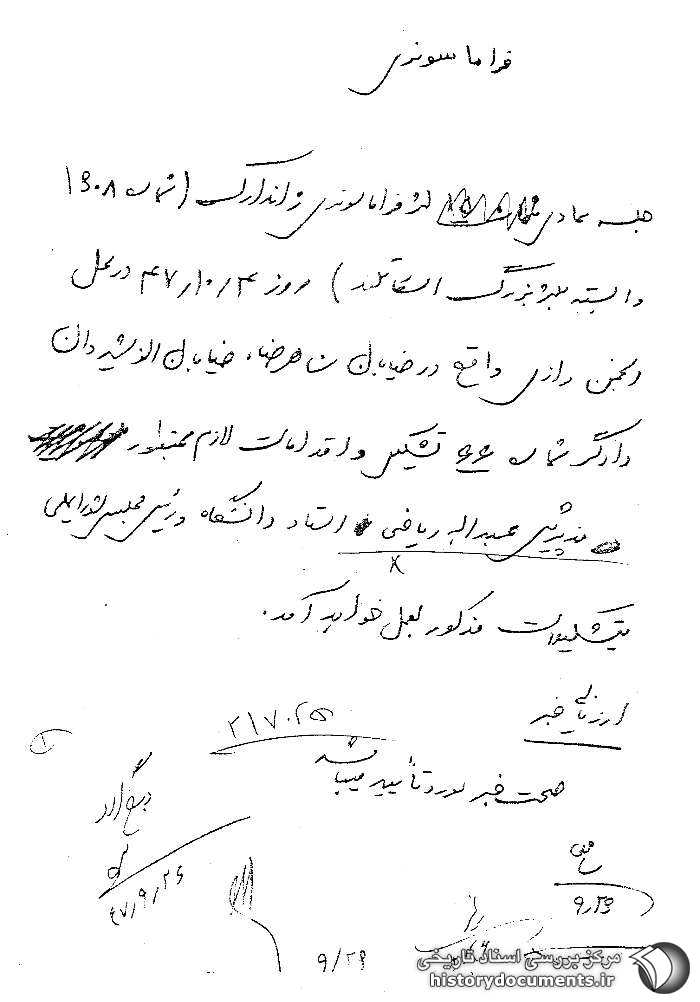 فراماسونری
جلسه عادی لژ فراماسونری واندارک (شماره ۱۳۰۸
وابسته بلژ بزرگ اسکاتلند) روز ۴۷/۱۰/۴ در محل
انجمن رازی واقع در خیابان شاهرضا، خیابان انوشیروان
دادگر شماره ۶۶ تشکیل و اقدامات لازم بمنظور
پذیرش عبداله ریاضی استاد دانشگاه و رئیس مجلس شورایملی
بتشکیلات مذکور بعمل خواهد آمد.
ارزیابی خبر
صحت خبر مورد تأیید میباشد
۴۷/۹/۲۶
۹/۲۹
مرکز بررسی اسناد تاریخی
historydocuments.ir